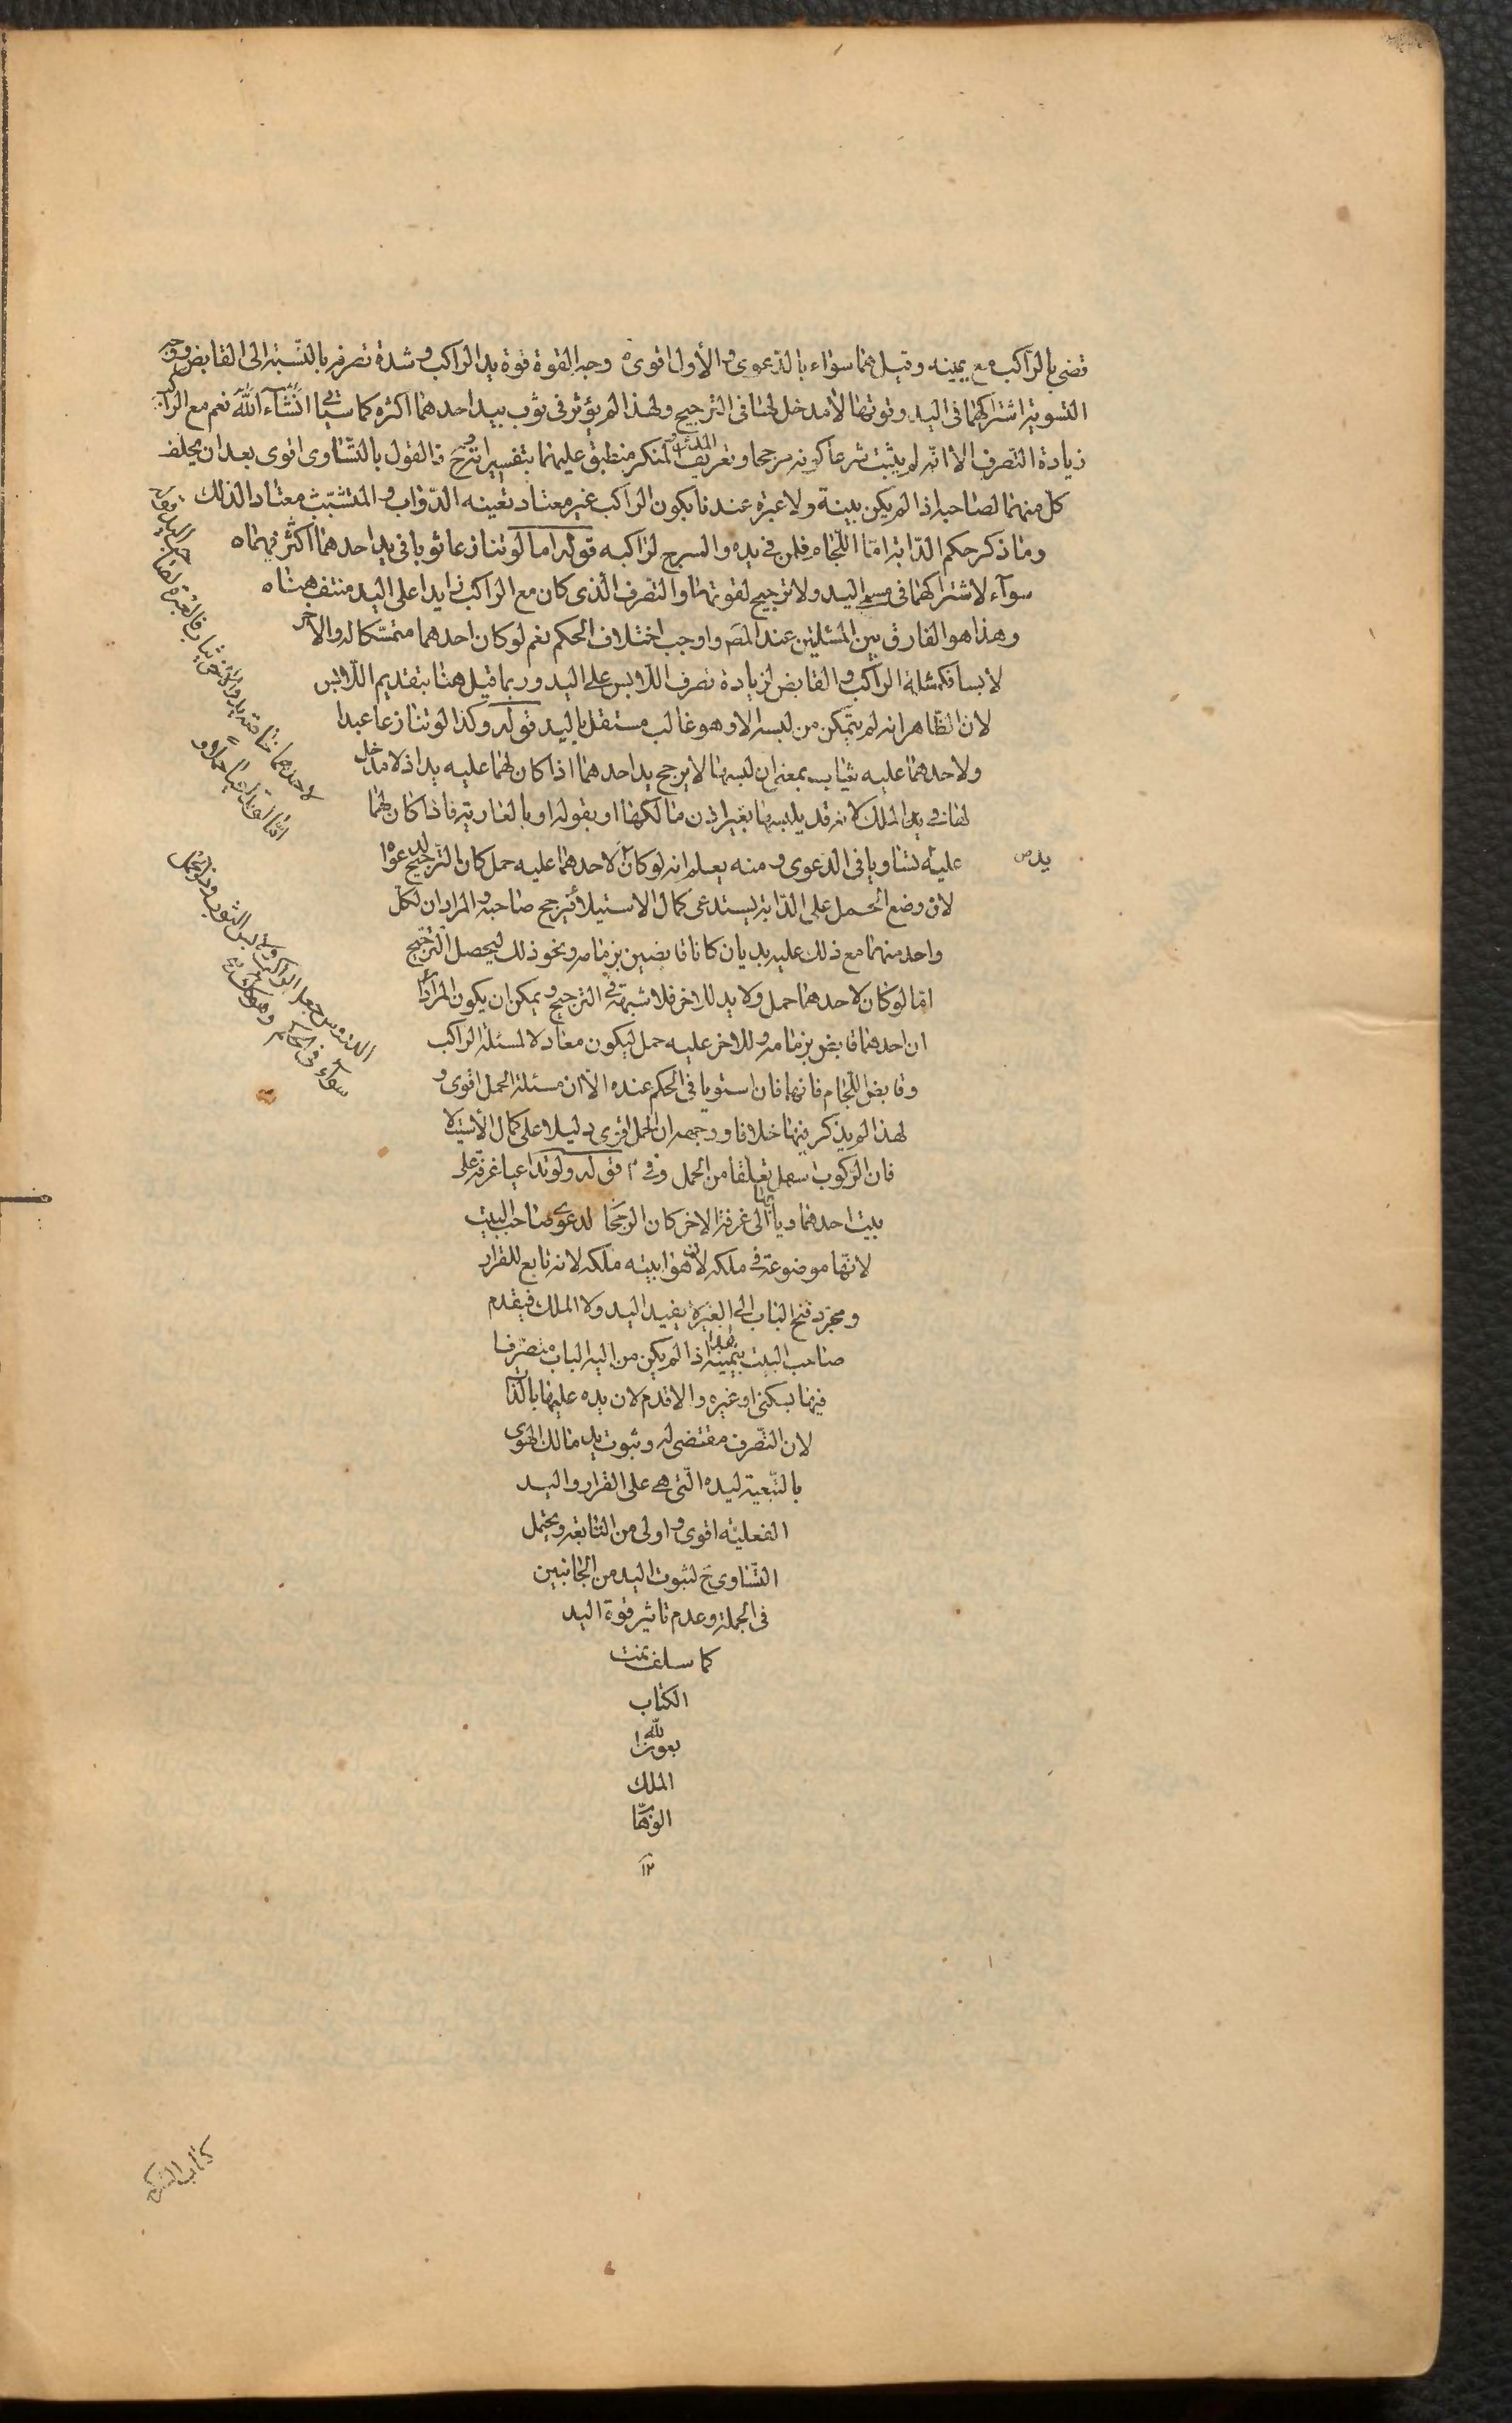 قضى بالراكب مع يمينه وقيل هما سواء بالدعوى والأول اقوى وجه القوة قوة يد الراكب وشدة تصرفه بالنسبة الى القابض ووجه
التسوية اشتراكهما في اليد وقوتها لا مدخل لها في الترجيح ولهذا لم يؤثر في ثوب بيد احدهما اكثره كما سياتي انشآء الله نعم مع الراكب
زيادة التصرف الا انه لم يثبت شرعا كونه مرجحا وتعريف المدعي والمنكر منطبق عليهما بتفسيراته وح فالقول بالتساوى اقوى بعد ان يحلف
كل منهما لصاحبه اذا لم يكن بينة ولا عبرة عندنا بكون الراكب غير معتاد تعينه الدواب والمتشبث معتادا لذلك
وما ذكر حكم الدابة اما اللجام فلمن في يده والسرج لراكبه قوله اما لو تنازعا ثوبا في يد احدهما اكثر فهما
سوآء لاشتراكهما في مسمى اليد ولا ترجيح لقوتها والتصرف الذى كان مع الراكب زايدا على اليد منتف هنا
وهذا هو الفارق بين المسئلتين عند المصر واوجب اختلاف الحكم نعم لو كان احدهما متمسكا له والاخر
لابسا فكمسئلة الراكب والقابض لزيادة تصرف اللابس على اليد وربما قيل هنا بتقديم اللابس
لان الظاهر انه لم يتمكن من لبسه الا وهو غالب مستقل باليد قوله وكذا لو تنازعا عبدا
ولاحدهما عليه ثياب بمعنى ان لبسها لا يرجح يد احدهما اذا كان لهما عليه يد اذ لا مدخل
لها في يد الملك لانه قد يلبسها بغير اذن مالكها او بقوله او بالعارية فاذا كان لهما
عليه يد تساويا في الدعوى ومنه يعلم انه لو كان لاحدهما عليه حمل كان الترجيح لدعواه
لان وضع الحمل على الدابة يستدعى كمال الاستيلاء فيرجح صاحبه والمراد ان لكل
واحد منهما مع ذلك عليه يد بان كانا قابضين بزمامه ونحو ذلك ليحصل الترجيح
اما لو كان لاحدهما حمل ولا يد للاخر فلا شبهة في الترجيح ويمكن ان يكون المراد
ان احدهما قابض بزمامه وللاخر عليه حمل ليكون معادلا لمسئلة الراكب
وقابض اللجام فانهما فان استويا في الحكم عنده الا ان مسئلة الحمل اقوى و
لهذا لم يذكر فيها خلافا ووجهه ان الحمل اقوى دليلا على كمال الأستيلا
فان الركوب سهل تعلقا من الحمل قوله ولو تداعيا غرفة على
بيت احدهما وبابها الى غرفة الاخر كان الرجحان لدعوى صاحب البيت
لانها موضوعة في ملكه لان هوا بيته ملكه لانه تابع للقرار
ومجرد فتح الباب الى الغير لا يفيد اليد ولا الملك فيقدم
صاحب البيت بيمينه هذا اذا لم يكن من اليه الباب متصرفا
فيها بسكنى او غيره والا قدم لان يده عليها بالذات
لان التصرف مقتضى له وثبوت يد مالك الهوى
بالتبعية ليده التى هي على القرار واليد
الفعلية اقوى واولى من التابعة ويحتمل
التساوى ح لثبوت اليد من الجانبين
في الجملة وعدم تاثير قوة اليد
كما سلف تمت
الكتاب
بعون الله
الملك
الوهاب
١٢
كتاب الشركة